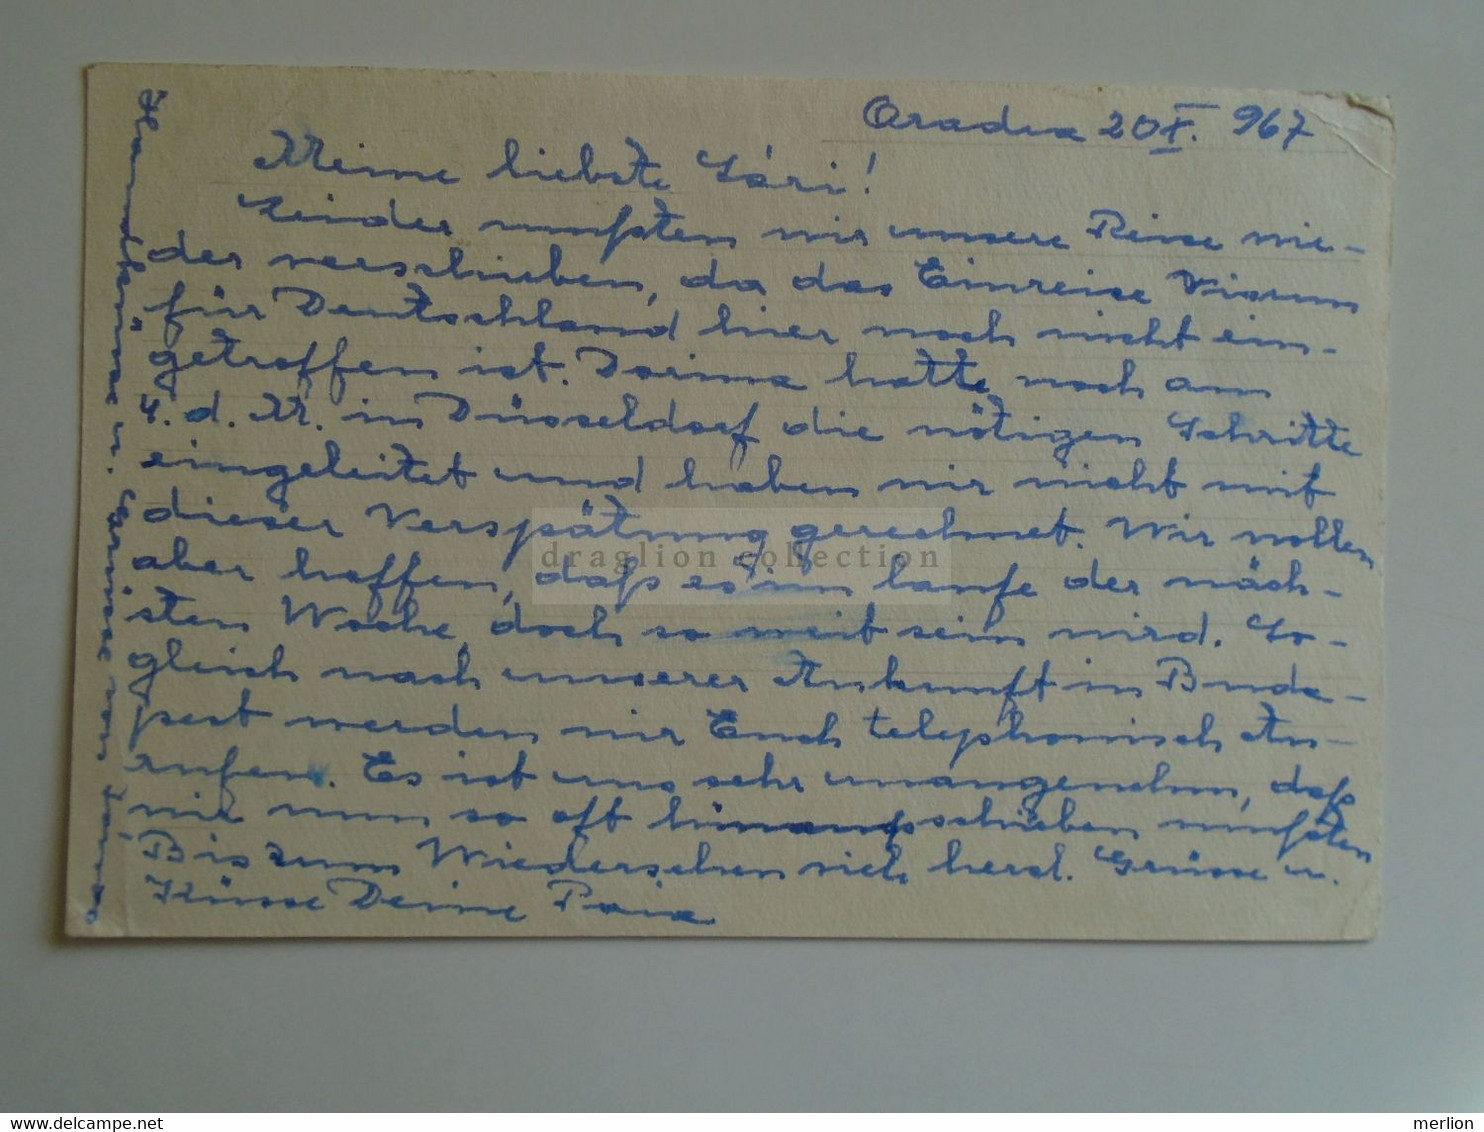 Oradea 20 X. 967
Meine liebste Sári!
Leider mußten wir unsere Reise wie-
der verschieben, da das Einreise Visum
für Deutschland hier noch nicht ein-
getroffen ist. Dorina hatte noch am
4. d. M. in Düsseldorf die nötigen Schritte
eingeleitet und haben wir nicht mit
dieser Verspätung gerechnet. Wir wollen
aber hoffen, daß es im laufe der näch-
sten Woche, doch so weit sein wird. So-
gleich nach unserer Ankunft in Buda-
pest werden wir Euch telephonisch An-
rufen. Es ist uns sehr unangenehm, daß
wir nun so oft hinausschieben mußten
Bis zum Wiedersehen viele herzl. Grüsse u.
Küsse Deine
Handküsse u. Grüsse von
draglion collection
delcampe.net
merlion